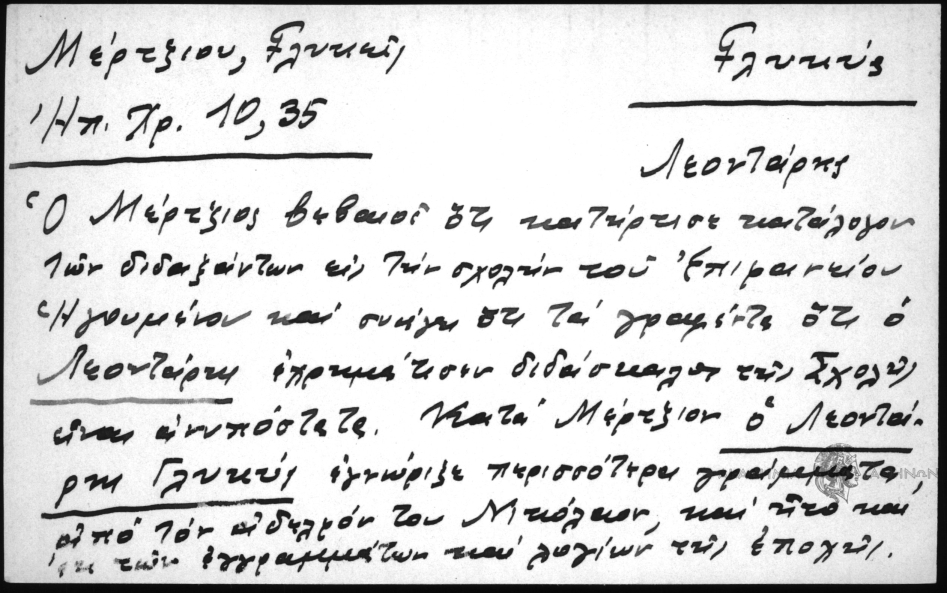 Μέρτζιου, Γλυκεῖς
Γλυκύς
Ἠπ. Χρ. 10, 35
Λεοντάρης
Ὁ Μέρτζιος βεβαιοῖ ὅτι κατήρτισε κατάλογον
τῶν διδαξάντων εἰς τήν σχολήν τοῦ Ἐπιφανείου
Ἡγουμένου καί συνάγει ὅτι τά γραφέντα ὅτι ὁ
Λεοντάρης ἐχρημάτισεν διδάσκαλος τῆς Σχολῆς
εἶναι ἀνυπόστατα. Κατά Μέρτζιον ὁ Λεοντά-
ρης Γλυκύς ἐγνώριζε περισσότερα γράμματα,
ἀπό τόν ἀδελφόν του Νικόλαον, καί ἦτο καί
ἐκ τῶν ἐγγραμμάτων καί λογίων τῆς ἐποχῆς.